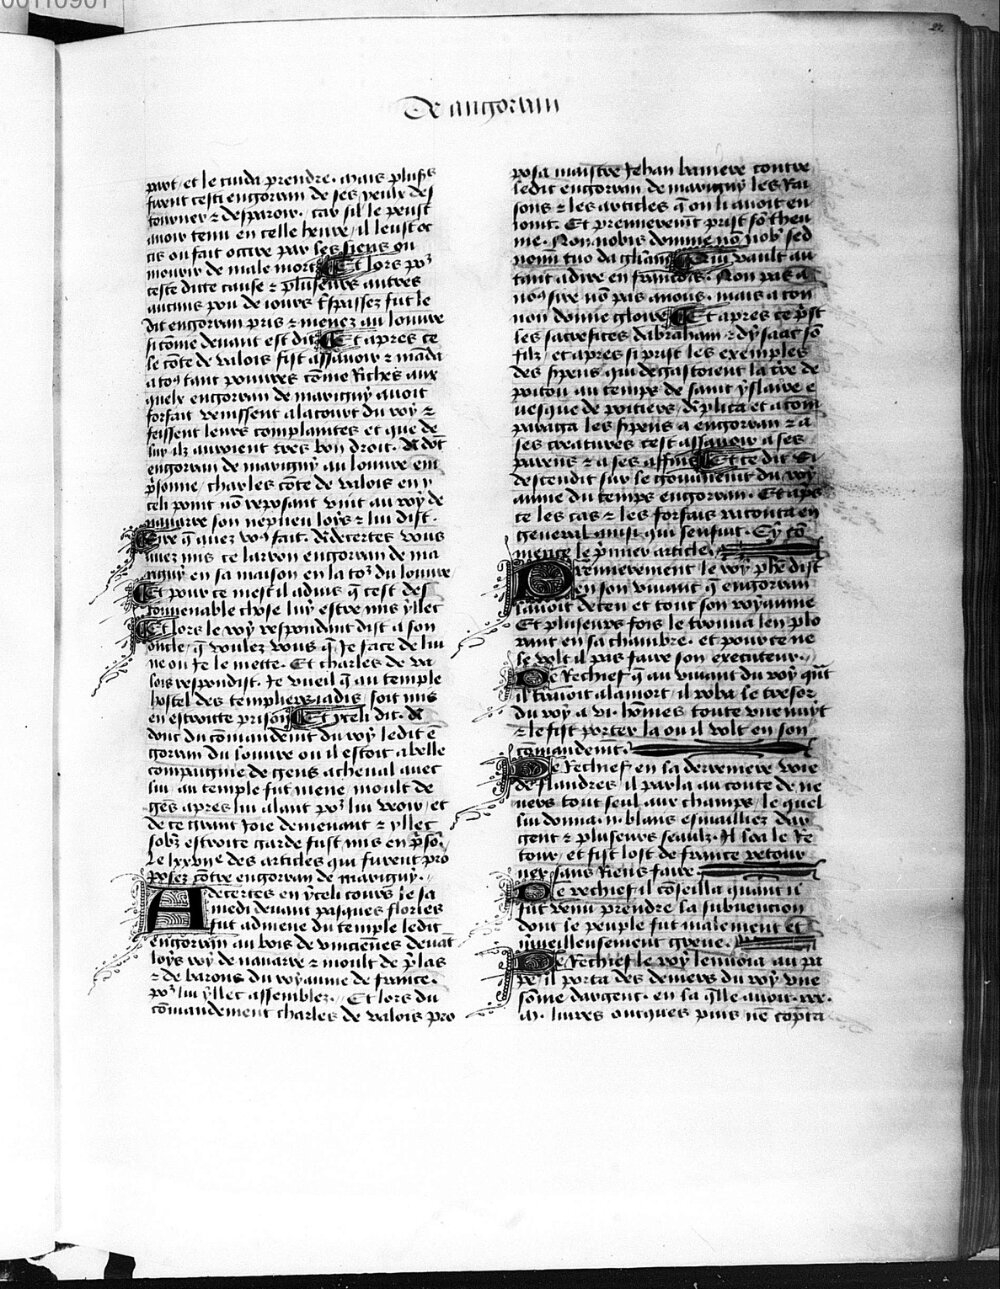 00110901
27
De angorrain
part / et le cuida prendre. mais plus̃s
furent cesti engorran de ses yeulx des
tourner ⁊ desparoir. car sil le peust
auoir tenu en celle heure / il leust oc
cis ou fait occire par ses siens ou
mourir de male mort Et lors poʳ
ceste dicte cause ⁊ pluseurs autres
aucuns pou de iours trespassez fut le
dit engorran pris ⁊ menez au louure
si cõme deuant est dit Et apres ce
le cõte de valois fist assauoir ⁊ mãda
a toꝰ tant pouures cõme riches aux
quelx engorran de marigny auoit
forfait venissent a la court du roy ⁊
feissent leurs complaintes et que de
luy ilz auroient tres bon droit. Et dõt
engorran de marigny au louure em
p̃sonne / charles cõte de valois en y
celi point nõ reposant vint au roy de
nauarre son nepueu loys ⁊ lui dist.
Sire q̃ auez voꝰ fait. Et certes vous
auez mis ce larron engorran de ma
rigny en sa maison en la toʳ du louure
Et pour ce mest il aduis q̃ cest des
conuenable chose luy estre mis yllec
Et lors le roy respondant dist a son
oncle / q̃ voulez vous q̃ Je face de lui
ne ou Je le mette. Et charles de va
lois respondist. Je vueil q̃ au temple
hostel des templiers iadis soit mis
en estroitte prison Et yceli dit. Et
donc du cõmandemẽt du roy ledit ẽ
gorran du louure ou il estoit a belle
compaignie de gens acheual auec
lui au temple fut mene moult de
gẽs apres lui alant poʳ lui veoir / et
de ce grant ioie demenant ⁊ yllec
sobz estroite garde fust mis en p̃sõ.
Le lxxviie des articles qui furent pro
posez cõtre engorran de marigny.
Adecertes en yceli cours le sa
medi deuant pasques flories
fut admene du temple ledit
engorran au bois de vinciẽnes deuãt
loys roy de nauarre ⁊ moult de p̃las
⁊ de barons du royaume de france.
poʳ lui yllec assemblez. Et lors du
cõmandement charles de valois pro
posa maistre Jehan baniere contre
ledit engorran de marigny les rai
sons ⁊ les articles q̃ on li auoit en
ioint. Et premierement prist sõ theu
me. Non nobis domine nõ nob̾ sed
nomĩ tuo da gl̃iam Qui vault au
tant a dire en francois. Non pas a
noꝰ sire nõ pas a nous. mais a ton
non donne gloire Et apres ce p̃st
les sacrefices dabraham ⁊ dysaac sõ
filz / et apres si prist les exemples
des sirpens qui degastoient la terre de
poitou au temps de saint yslaire e
uesque de poitiers / desplica et a com
paraga les sirpens a engorran ⁊ a
ses creatures cest assauoir a ses
parens ⁊ a ses affins Et ce dit il
descendit sur le gouuernemẽt du roy
aume du temps engorran. Et ap̃s
ce les cas ⁊ les forfais raconta en
general ainsi qui sensuit. Cy cõ
mence le p̃mier article.
Premierement le roy ph̃e dist
en son viuant q̃ engorran
lauoit deceu et tout son royaume
Et pluseurs fois le trouua len plo
rant en sa chambre. et pour ce ne
le volt il pas faire son executeur.
De rechief q̃ au viuant du roy quãt
il trauoit a la mort / il roba le tresor
du roy a vi. hõmes toute vne nuyt
⁊ le fist porter la ou il volt en son
cõmandemẽt.
De rechief en la derreniere voie
de flandres il parla au conte de ne
uers tout seul aux champs / le quel
lui donna .ii. blans esmailliez dar
gent ⁊ pluseurs seaulx. Il fist le re
tour et fist lost de france retour
ner sans riens faire
De rechief il cõseilla quant il
fut venu prendre la subuencion
dont le peuple fut malement et
m̃ueilleusement greue.
De rechief le roy lenuoia au pa
pe / il porta des deniers du roy vne
sõme dargent. en la q̃lle auoit .xv.
.m. liures oncques puis nẽ cõpta